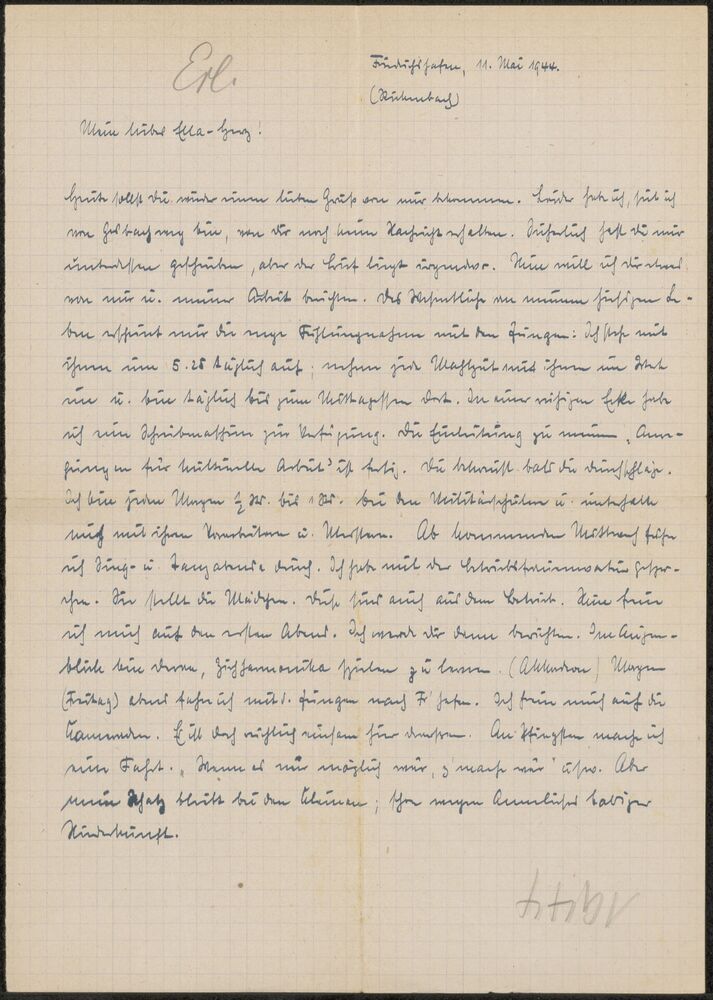 Erl.
Friedrichshafen, 11. Mai 1944.
(Rickenbach)
Mein liebes Ella-Herz!
Heute sollst Du wieder einen lieben Gruß von mir bekommen. Leider habe ich, seit ich
von Gersbach weg bin, von Dir noch keine Nachricht erhalten. Sicherlich hast Du mir
unterdessen geschrieben, aber der Brief liegt irgendwo. Nun will ich Dir etwas
von mir u. meiner Arbeit berichten. Das Wesentliche an meinem hiesigen Le-
ben scheint mir die enge Fühlungnahme mit den Jungen: Ich stehe mit
ihnen um 5.25 täglich auf; nehme jede Mahlzeit mit ihnen im
ein u. bin täglich bis zum Mittagessen dort. In einer ruhigen Ecke habe
ich eine Schreibmaschine zur Verfügung. Die Einleitung zu meinen „Anre-
gungen für kulturelle Arbeit" ist fertig. Du bekommst bald die Durchschläge.
Ich bin jeden Morgen ½ bis 1 bei den u. unterhalte
mich mit ihren Vorarbeitern u. Meistern. Ab kommenden Mittwoch führe
ich Sing- u. Tanzabende durch. Ich habe mit der gespro-
chen. Sie stellt die Mädchen. Diese sind auch aus dem Betrieb. Nun freue
ich mich auf den ersten Abend. Ich werde Dir dann berichten. Im Augen-
blick bin daran, Ziehharmonika spielen zu lernen. (Akkordeon) Morgen
(Freitag) abend fahre ich mit d. Jungen nach F'hafen. Ich freue mich auf die
Kameraden. Es ist doch reichlich einsam hier draussen. An Pfingsten mache ich
eine Fahrt. „Wenn es nur möglich wär, z'mache wär" usw. Aber
mein Schatz bleibt bei den Kleinen; schon wegen Annelieses baldiger
Niederkunft.